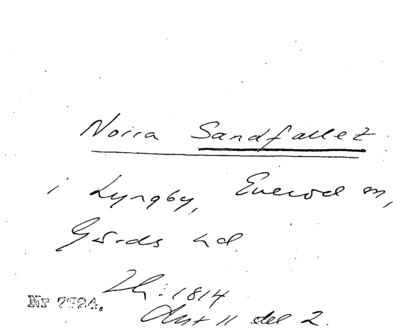 Norra Sandfallet
i Lyngby, Everöd sn,
Gärds hd.
Lh: 1814
Akt 11 del 2.
Nr 7524.